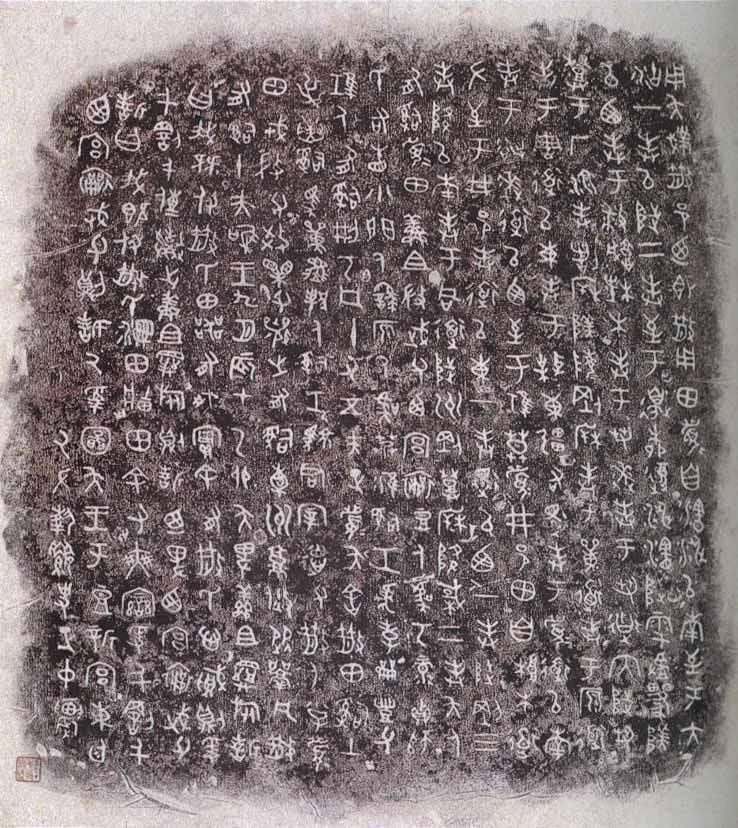 用夨散邑廼即散用田眉自瀗涉以南至于大
沽一封以陟二封至于邊柳復涉瀗陟雩
以西封于播城楮木封于芻逨封于芻道內陟芻
登于厂湶封諸陵剛封于單道封于原道
封于周道以東封于東疆右還封于眉道以南
封于逨道以西至于莫眉井邑田自桹木道
左至于井邑封道以東一封還以西一封陟剛三
封降以南封于同道陟州剛登降棫二封夨人
有嗣眉田鮮且微武父西宮襄豆人虞丂彔貞師
氏右眚小門人繇原人虞艿淮嗣工虎孝龠豐父
人有嗣刑丂凡十又五夫正眉夨舍散田嗣土
屰嗣馬單邦人嗣工君宰德父散人小子眉
田戎微父效父襄之有嗣橐州就焂從嘼凡散
有嗣十夫唯王九月辰才乙卯夨卑鮮且旅誓
曰我既付散氏田器有爽實余有散氏心賊則爰
千罰千傳棄之鮮且旅則誓廼卑西宮襄武父
誓曰我既付散氏濕田田余又爽變爰千罰千
西宮襄武父則誓厥受圖夨王于豆新宮東廷
厥左執史正中農